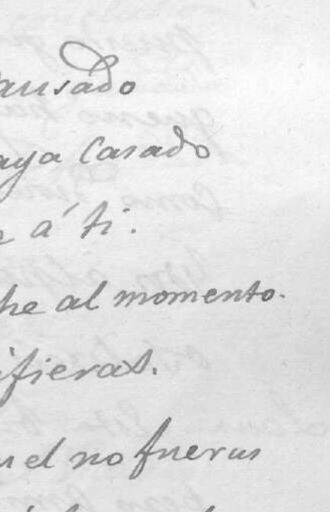 ausado
aya Casado
e á ti.
he al momento.
ifieras.
u el no fueras